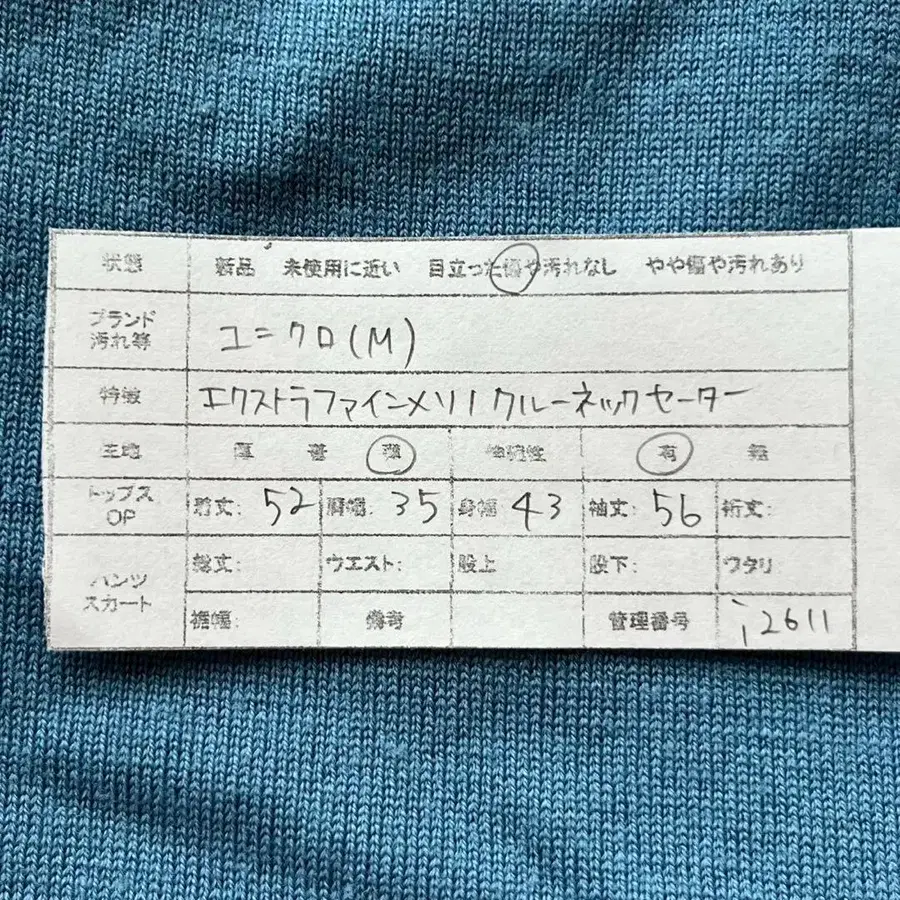 状態 新品 未使用に近い 目立った傷や汚れなし やや傷や汚れあり
ブランド
汚れ等
ユニクロ(M)
特徴 エクストラファインメリノクルーネックセーター
生地 厚 普 薄 伸縮性 有 無
トップス
OP
着丈: 52 肩幅: 35 身幅 43 袖丈: 56 裄丈:
パンツ
スカート
総丈: ウエスト: 股上 股下: ワタリ
裾幅: 備考 管理番号 i2611